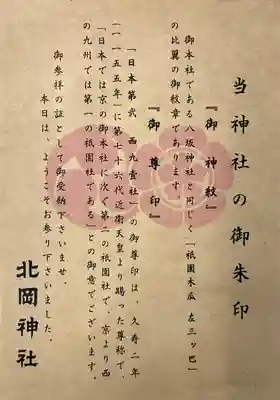 当神社の御朱印
『御神紋』
御本社である八坂神社と同じく「祇園木瓜 左三ッ巴」
の比翼の御紋章であります
『御尊印』
「日本第弐 西九壹社」の御尊印は、久寿二年
（一一五五年）に第七十六代近衛天皇より賜った尊称で、
「日本では京の御本社に次ぐ第二の祇園社で、京より西
の九州では第一の祇園社である」との御意でございます。
御参拝の証として御受納下さいませ。
本日は、ようこそお参り下さいました。
北岡神社